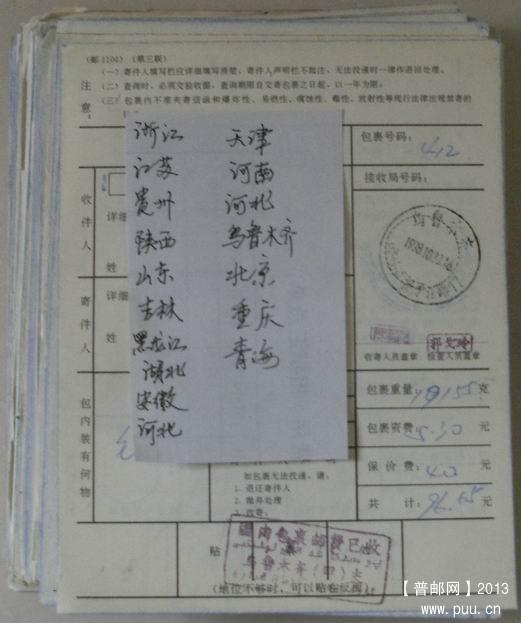 (邮1106) (第三联)
注意:
(一) 寄件人填写栏应详细填写清楚、寄件人声明栏不批注、无法投递时一律作退回处理。
(二) 查询时、必须交验收据、查询期限自交寄包裹之日起、以一年为限;
(三) 包裹内不准夹寄信函和爆炸性、易燃性、腐蚀性、毒性、放射性等现行法律法规禁寄的
浙江
江苏
贵州
陕西
山东
吉林
黑龙江
湖北
安徽
河北
天津
河南
河北
乌鲁木齐
北京
重庆
青海
包裹号码:
412
接收局号码:
收件人
详细
姓
寄件人
详细
姓
包内装有何物
收寄人员盖章
检查人员盖章
包裹重量
克
包裹资费
元
保价费:
40
元
共计:
元
如包裹无法投递,请:
1. 退还寄件人
2. 抛弃处理
3. 改寄:
贴
国内包裹邮费已收
乌鲁木齐
(地位不够时,可以贴在反面)
【普邮网】2013
www.puu.cn